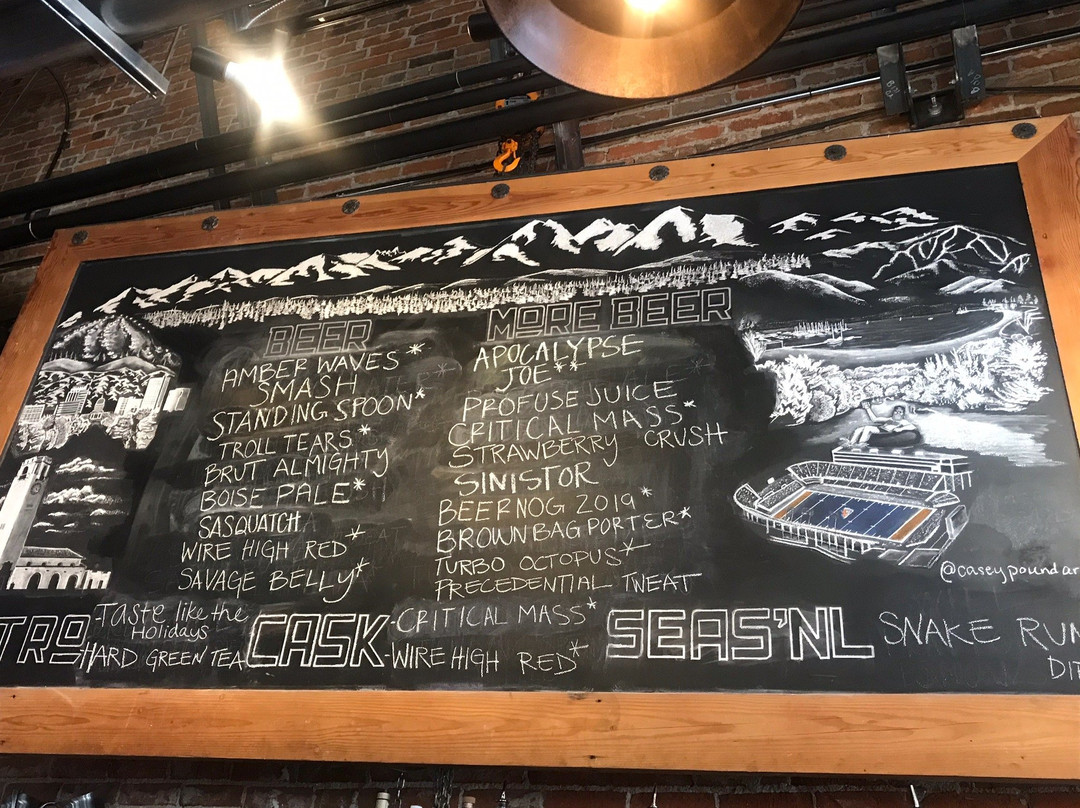 BEER
AMBER WAVES*
SMASH
STANDING SPOON*
TROLL TEARS*
BRUT ALMIGHTY
BOISE PALE*
SASQUATCH
WIRE HIGH RED*
SAVAGE BELLY*
MORE BEER
APOCALYPSE
JOE**
PROFUSE JUICE
CRITICAL MASS*
STRAWBERRY CRUSH
SINISTOR
BEERNOG 2019*
BROWNBAG PORTER*
TURBO OCTOPUS*
PRECEDENTIAL TWEAT
@caseypoundar
TRO
-Taste like the
Holidays
HARD GREEN TEA
CASK
-CRITICAL MASS*
-WIRE HIGH RED*
SEAS'NL
SNAKE RUN